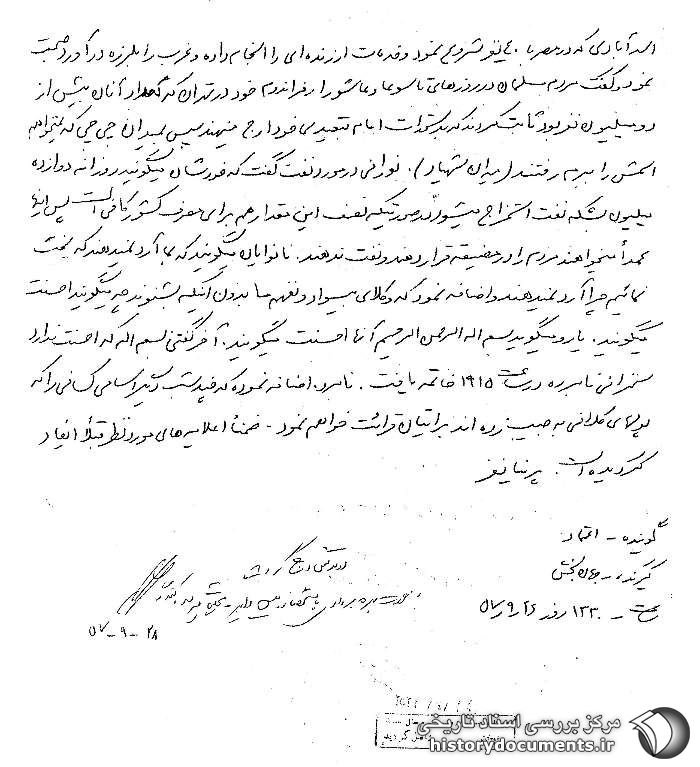 اسدآبادی که در مصر با ۴۰ نفر شروع نمود و خدمات ارزنده‌ای را انجام داده و غرب را بلرزه درآورد صحبت
نمود و گفت مردم مسلمان در روزهای تاسوعا و عاشورا رفراندم خود در تهران که تعداد آنان بیش از
دو میلیون نفر بود ثابت کردند که بدستورات امام تبعیدی خود ارج مینهند سپس بمیدان چی چی که نمیخواهم
اسمش را ببرم رفتند (میدان شهیاد). نورانی در مورد نفت گفت که خودشان میگویند روزانه دوازده
میلیون بشکه نفت استخراج میشود در صورتیکه نصف این مقدار هم برای مصرف کشور کافی است پس اینها
عمداً میخواهند مردم را در مضیقه قرار دهند و نفت ندهند. نانوایان میگویند که بما آرد نمیدهند که پخت
نمائیم چرا آرد نمیدهند و اضافه نمود که وکلای بیسواد و نفهم ما بدون آنکه بشنوند چه میگویند احسنت
میگویند. یارو میگوید بسم اله الرحمن الرحیم آنها احسنت میگویند. آخر گفتن بسم اله که احسنت ندارد
سخنرانی نامبرده در ساعت ۱۹۱۵ خاتمه یافت. نامبرده اضافه نموده که فردا شب اسامی کسانی را که
پولهای کلانی به جیب زده‌اند برایتان قرائت خواهم نمود - ضمناً اعلامیه‌های مورد نظر قبلاً ایفاد
گردیده است.
گوینده - اعتماد
گیرنده - جهانبخش
ساعت - ۱۳۳۰ روز ۵۷/۹/۲۶
در بولتن درج گردید
۵۷-۹-۲۸
مرکز بررسی اسناد تاریخی
historydocuments.ir